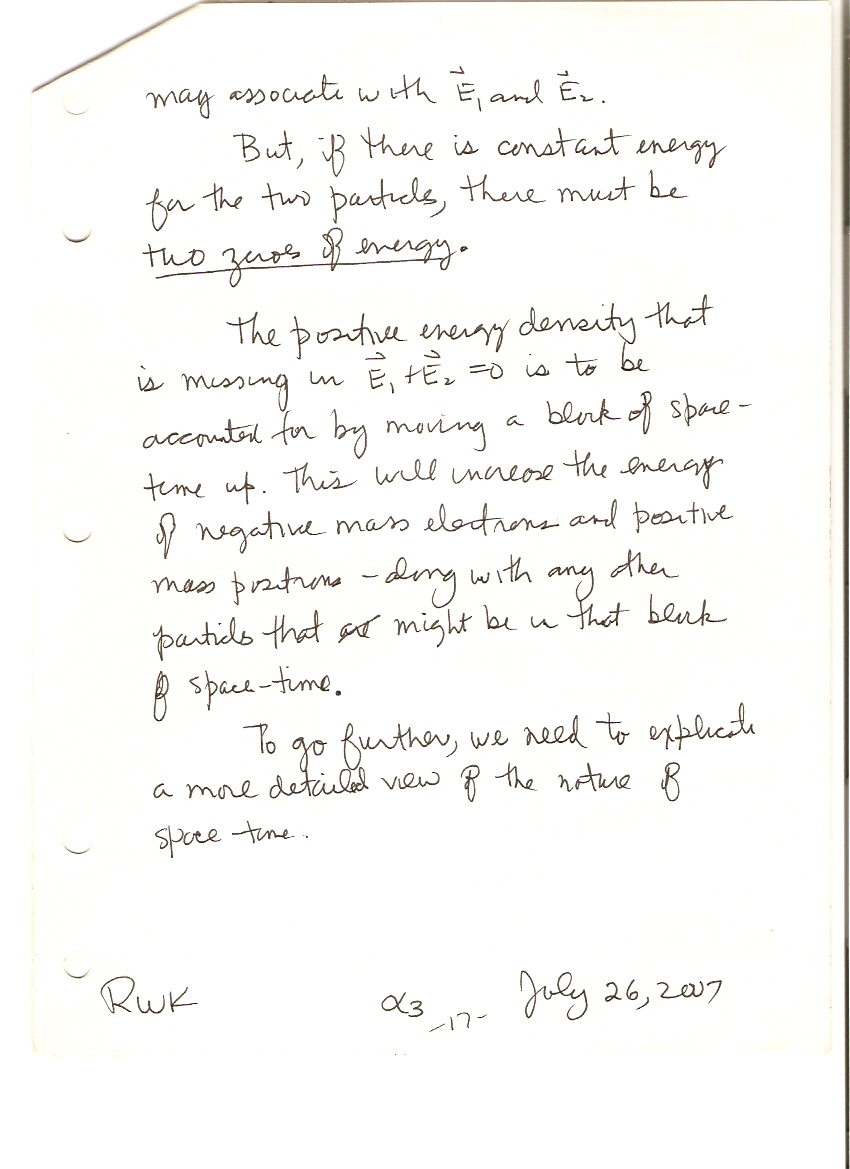 may associate with E⃗₁ and E⃗₂.
But, if there is constant energy
for the two particles, there must be
two zeroes of energy.
The positive energy density that
is missing in E⃗₁ + E⃗₂ = 0 is to be
accounted for by moving a block of space-
time up. This will increase the energy
of negative mass electrons and positive
mass positrons – along with any other
particles that might be in that block
of space-time.
To go further, we need to explicate
a more detailed view of the nature of
space time.
RWK α3 -17- July 26, 2007